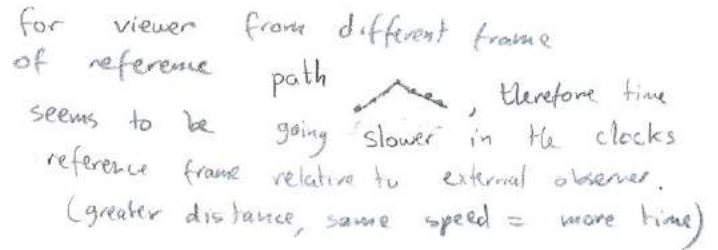 for viewer from different frame
of reference path
, therefore time
seems to be going slower in the clocks
reference frame relative to external observer.
(greater distance, same speed = more time)